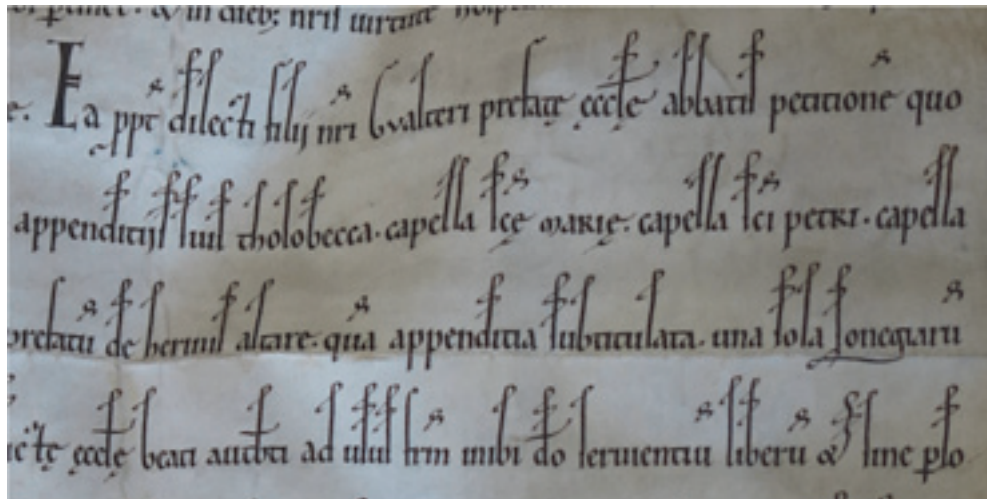 & in dieb; nr̄is
Ea ꝓpt̄ dilecti filij nr̄i Gvalteri prefatę ęccl̄ę abbatis petitionē quo
appenditijs suis tholobecca. capella sc̄ę marię. capella sc̄i petri. capella
de hernius altare. quā appenditia subtitulata. una sola
ęccl̄ę beati autb̄ti ad usus fr̄m inibi do seruientiū liberū & sine